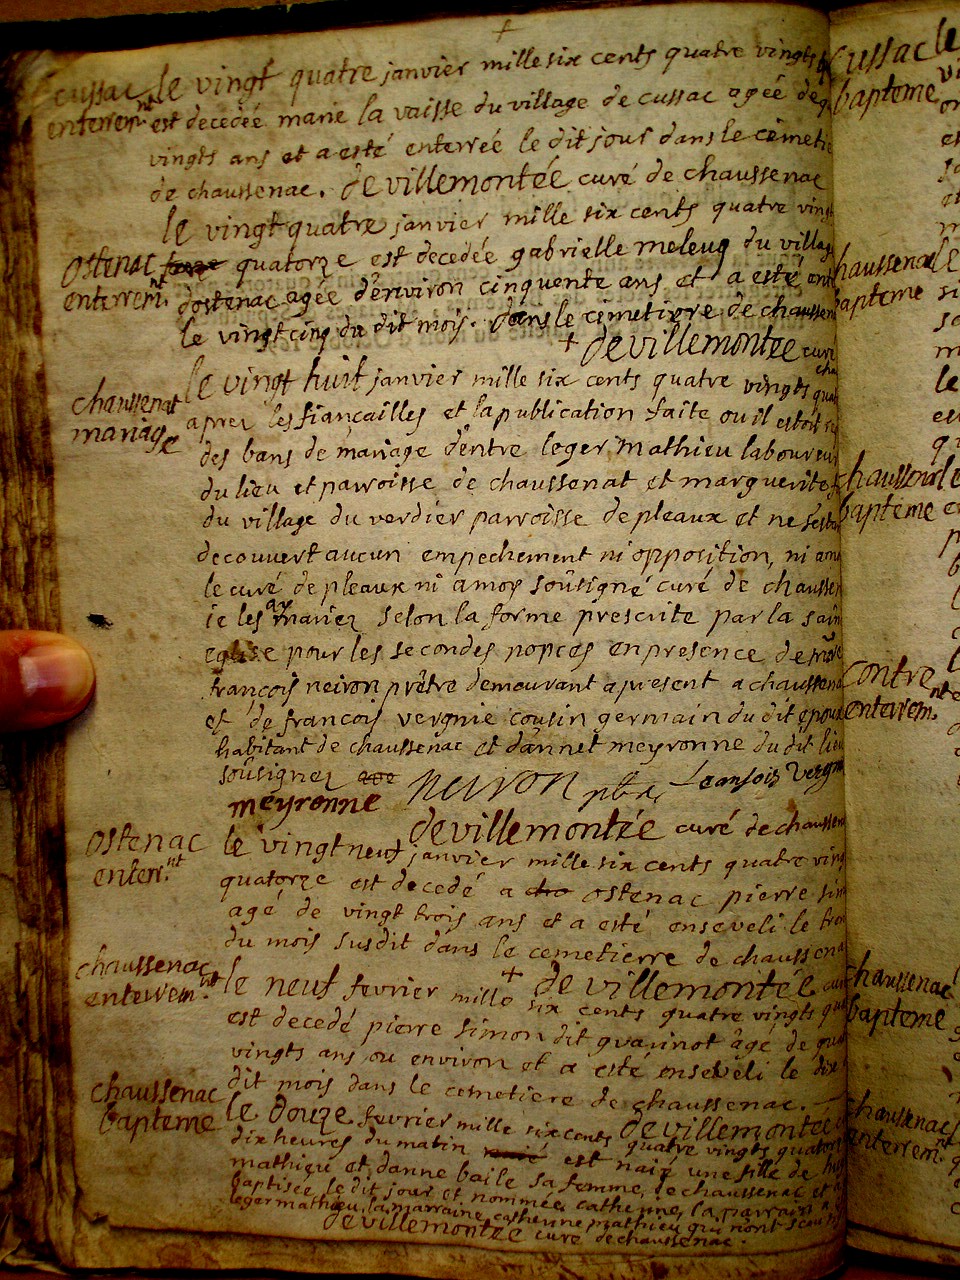 cussac le vingt quatre janvier mille six cents quatre vingts
enterrem.nt est decedée marie la vaisse du village de cussac agée de
vingts ans et a esté enterrée le dit jour dans le cemetie
de chaussenac. devillemontée curé de chaussenac
le vingt quatre janvier mille six cents quatre vingt
ostenac quatorze est decedée gabrielle meleuq du villag
enterrem.nt dostenac agée denviron cinquente ans et a esté ent
le vingt cinq du dit mois. dans le cimetiere de chaussen
+ devillemontee curé
le vingt huit janvier mille six cents quatre vingts qua
chaussenat apres les fiancailles et la publication faite ou il estoit
mariage des bans de mariage dentre leger mathieu laboureur
du lieu et parroisse de chaussenat et marguerite
du village du verdier parroisse de pleaux et ne sest
decouvert aucun empechement ni opposition, ni a
le curé de pleaux ni a moy soûsigné curé de chaussen
ie les ay mariez selon la forme prescrite par la sain
eglise pour les secondes nopces en presence de
francois neiron prêtre demeurant apresent a chaussena
et de francois vergnie cousin germain du dit epoux
habitant de chaussenac et dannet meyronne du dit lieu
soûsignez neiron pbre francois vergni
meyronne
devillemontée curé de chaussen
ostenac le vingt neuf janvier mille six cents quatre ving
enterr.nt quatorze est decedé a ostenac pierre sim
agé de vingt trois ans et a esté enseveli le tren
du mois susdit dans le cemetierre de chaussena
+ devillemontée cur
chaussenac le neuf fevrier mille six cents quatre vingts qua
enterrem.nt est decedé pierre simon dit age de qua
vingts ans ou environ et a esté enseveli le dix
dit mois dans le cemetiere de chaussenac.
devillemontée
chaussenac le douze fevrier mille six cents quatre vingts quator
bapteme dix heures du matin est naiz une fille de
mathieu et danne baile sa femme, de chaussenac et
baptisée le dit jour et nommée catherine, la parrain
leger mathieu, la marraine catherine mathieu qui nont sceu
devillemontée curé de chaussenac.
cussac le
bapteme
chaussenac le
bapteme
chaussenac le
bapteme
contre
enterrem.nt
chaussenac
bapteme
chaussenac
enterrem.nt